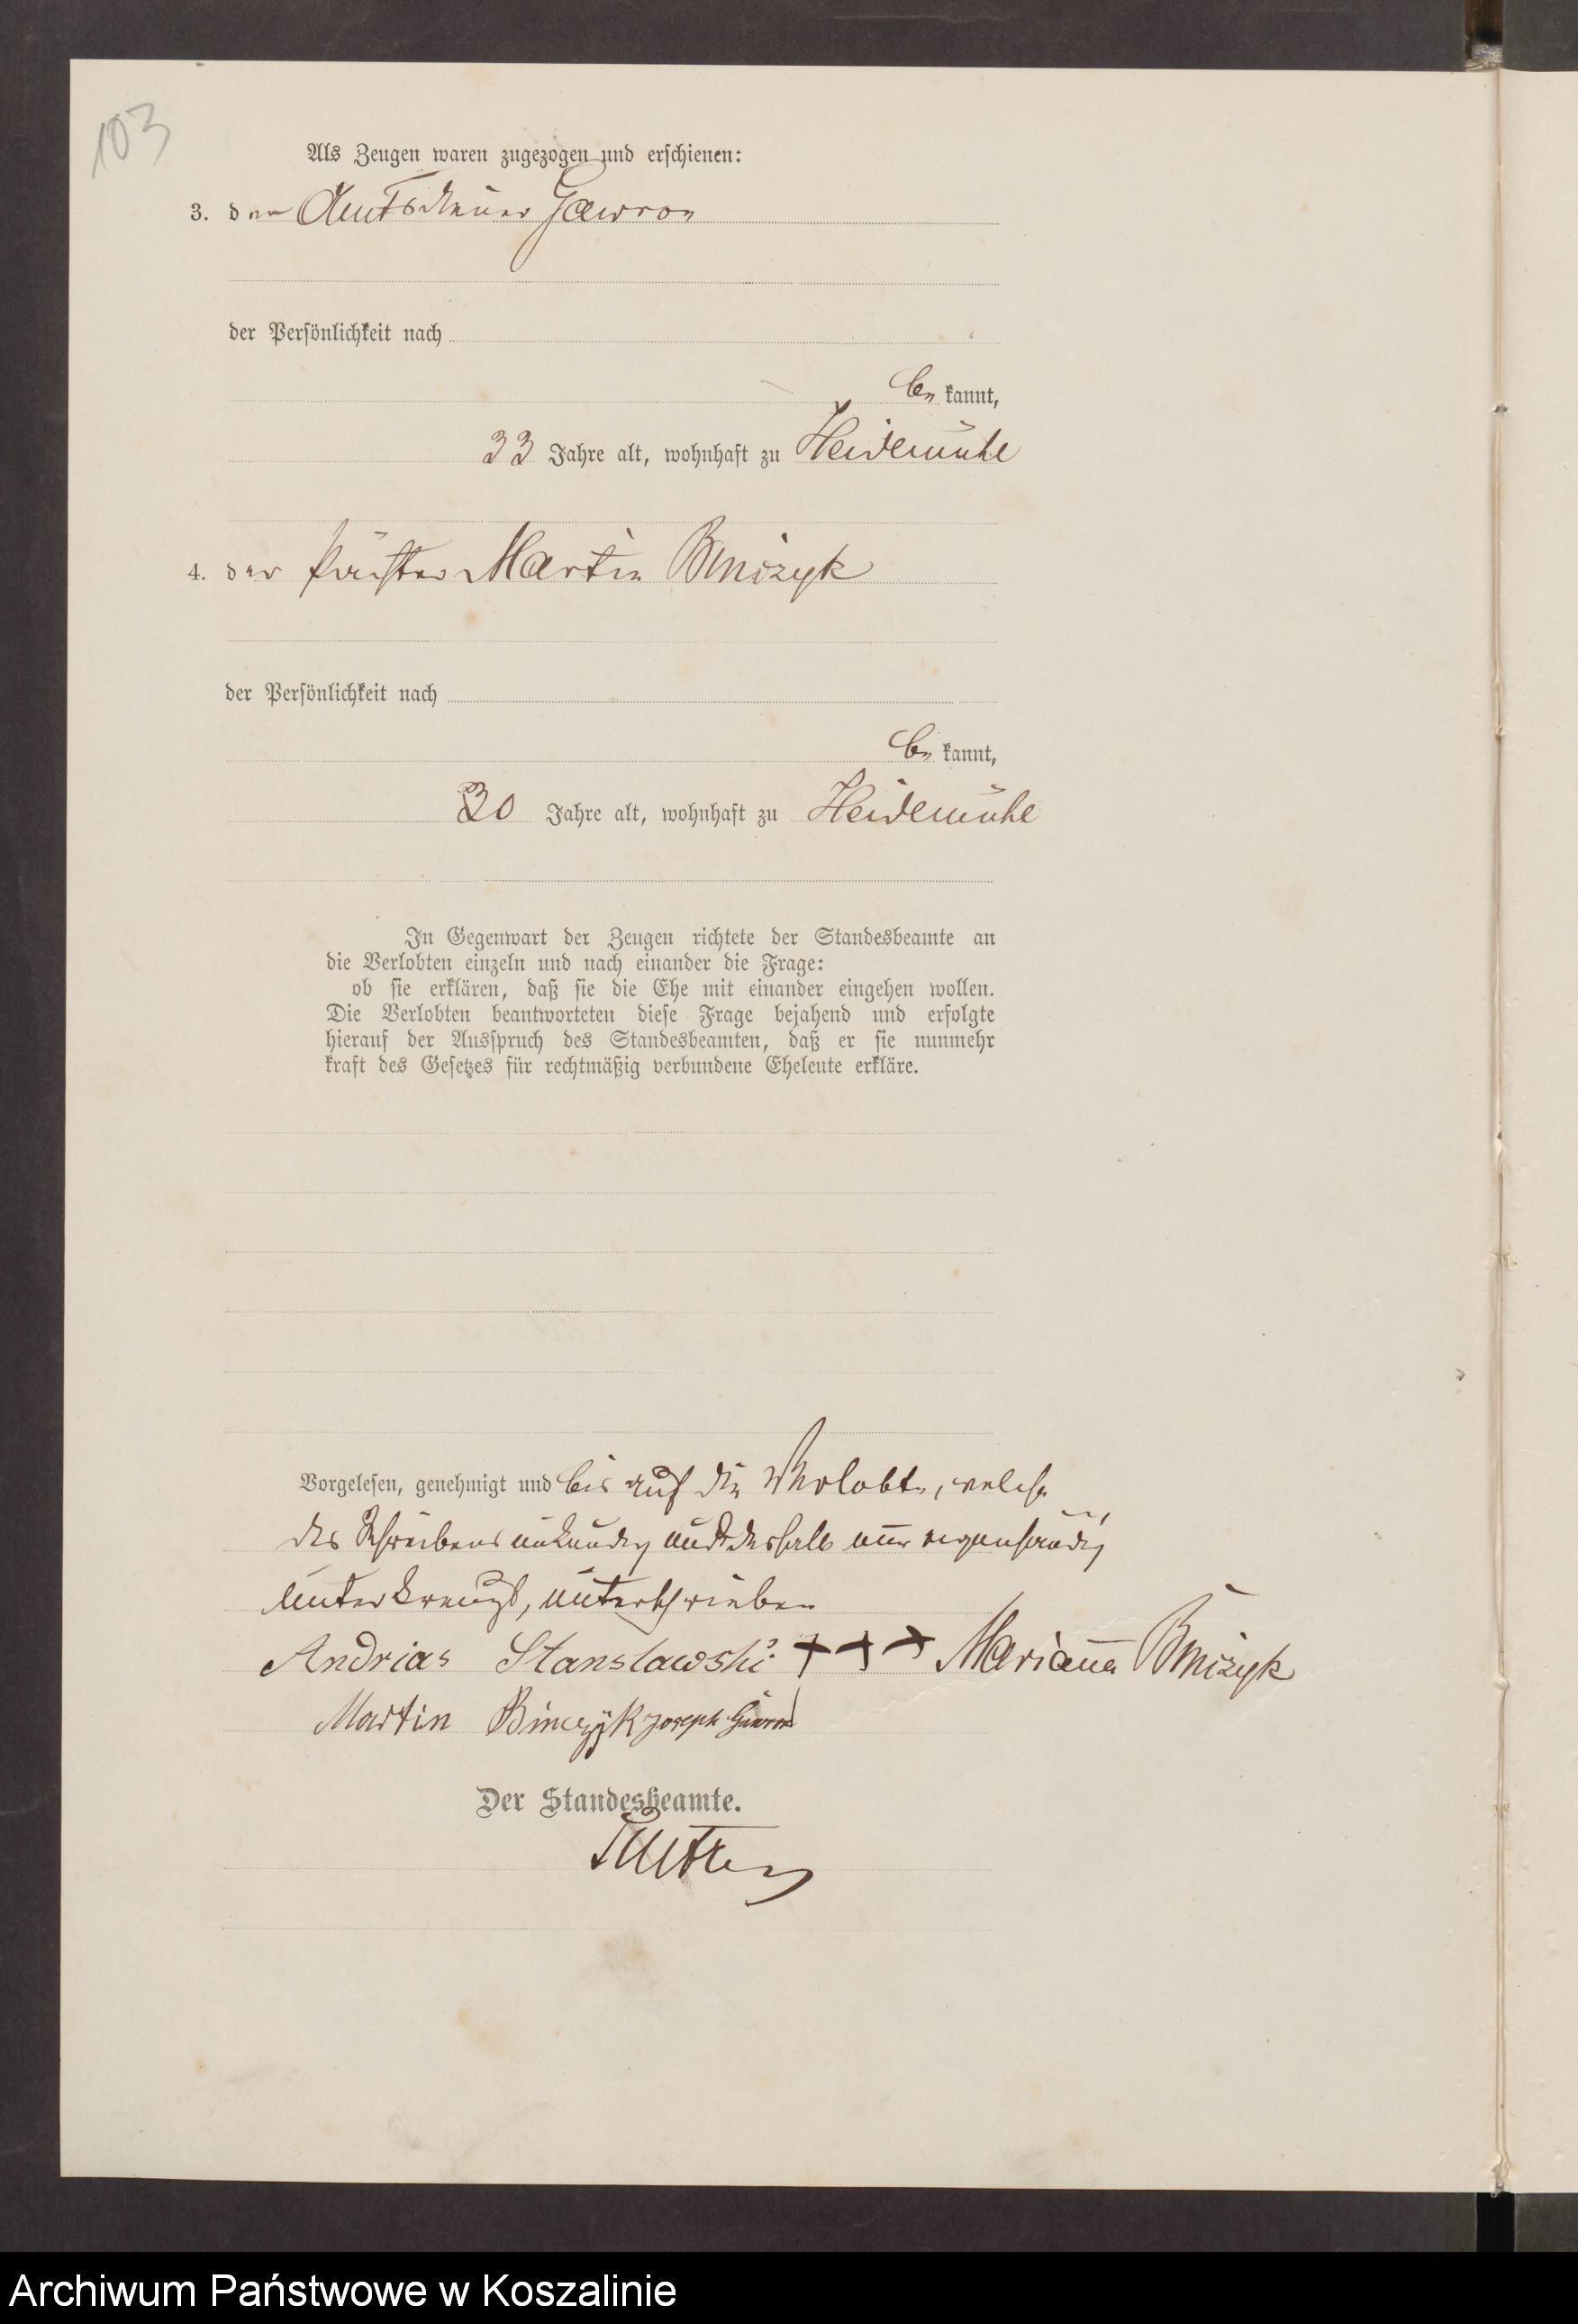 103
Als Zeugen waren zugezogen und erschienen:
3. der Amtsdiener Gawron
der Persönlichkeit nach
be kannt,
33 Jahre alt, wohnhaft zu Heidemühle
4. der Martin Binczyk
der Persönlichkeit nach
be kannt,
30 Jahre alt, wohnhaft zu Heidemühle
In Gegenwart der Zeugen richtete der Standesbeamte an
die Verlobten einzeln und nach einander die Frage:
ob sie erklären, daß sie die Ehe mit einander eingehen wollen.
Die Verlobten beantworteten diese Frage bejahend und erfolgte
hierauf der Ausspruch des Standesbeamten, daß er sie nunmehr
kraft des Gesetzes für rechtmäßig verbundene Eheleute erkläre.
Vorgelesen, genehmigt und bis auf die Verlobte, welche
des Schreibens unkundig und deshalb nur eigenhändig
unterkreuzt, unterschrieben
Andrias Stanslawski +++ Marianna Binczyk
Martin Binczyk Joseph Gawron
Der Standesbeamte.
Archiwum Państwowe w Koszalinie